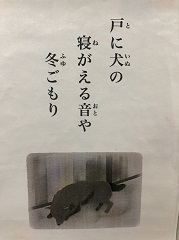 戸に犬の
寝がえる音や
冬ごもり